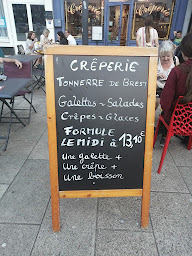 Crêperie
CRÊPERIE
TONNERRE DE BREST
GALETTES ~ SALADES
CRÊPES ~ GLACES
FORMULE
LE MIDI à 13,10€
UNE GALETTE +
UNE CRÊPE +
UNE BOISSON